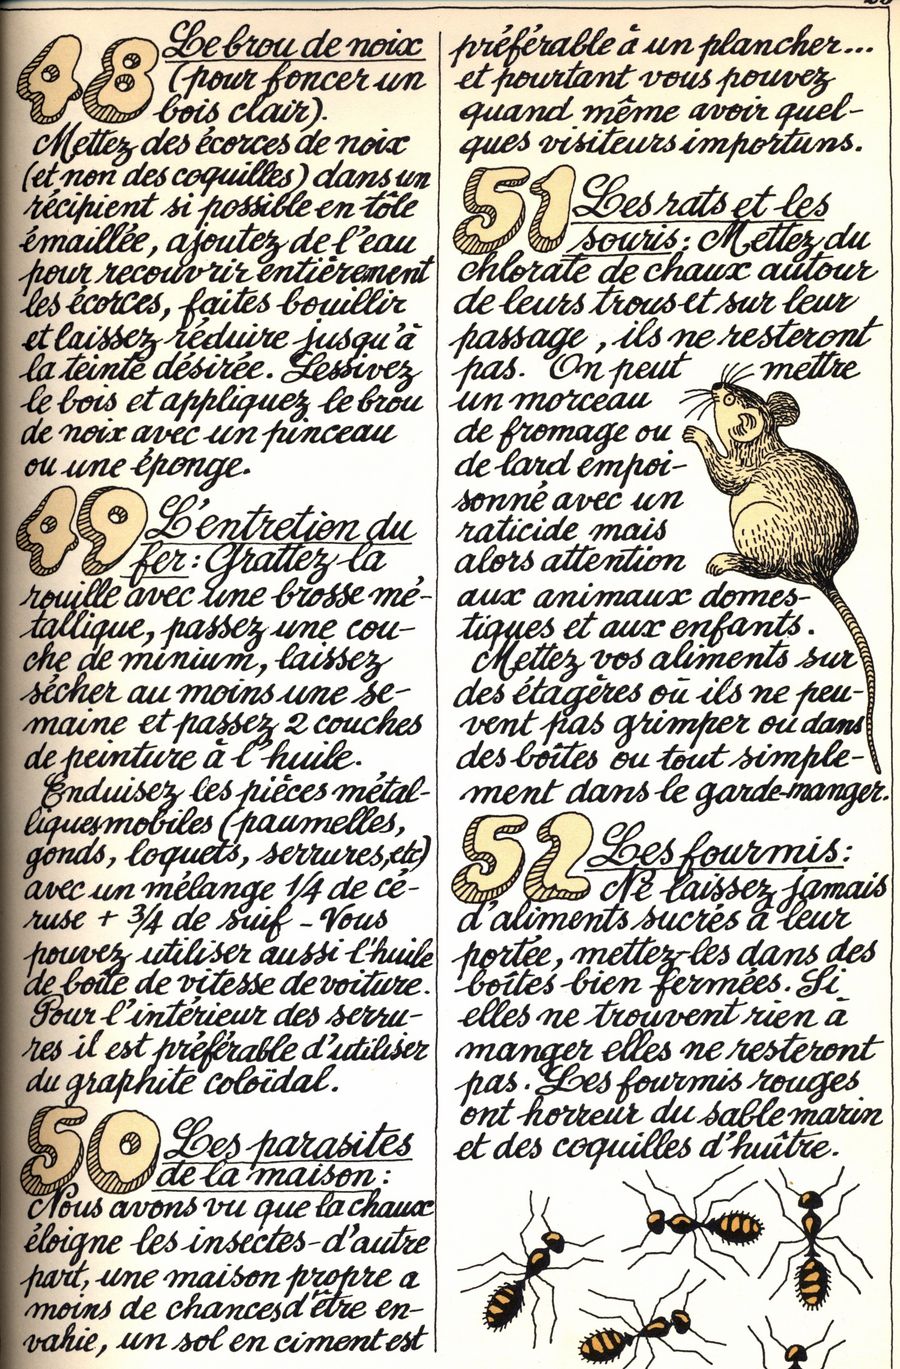 48 Le brou de noix
(pour foncer un
bois clair).
Mettez des écorces de noix
(et non des coquilles) dans un
récipient si possible en tôle
émaillée, ajoutez de l'eau
pour recouvrir entièrement
les écorces, faites bouillir
et laissez réduire jusqu'à
la teinte désirée. Lessivez
le bois et appliquez le brou
de noix avec un pinceau
ou une éponge.
49 L'entretien du
fer : Grattez la
rouille avec une brosse mé-
tallique, passez une cou-
che de minium, laissez
sécher au moins une se-
maine et passez 2 couches
de peinture à l'huile.
Enduisez les pièces métal-
liques mobiles (paumelles,
gonds, loquets, serrures, etc)
avec un mélange 1/4 de cé-
ruse + 3/4 de suif - Vous
pouvez utiliser aussi l'huile
de boîte de vitesse de voiture.
Pour l'intérieur des serru-
res il est préférable d'utiliser
du graphite coloïdal.
50 Les parasites
de la maison :
Nous avons vu que la chaux
éloigne les insectes - d'autre
part, une maison propre a
moins de chances d'être en-
vahie, un sol en ciment est
préférable à un plancher...
et pourtant vous pouvez
quand même avoir quel-
ques visiteurs importuns.
51 Les rats et les
souris : Mettez du
chlorate de chaux autour
de leurs trous et sur leur
passage, ils ne resteront
pas. On peut mettre
un morceau
de fromage ou
de lard empoi-
sonné avec un
raticide mais
alors attention
aux animaux domes-
tiques et aux enfants.
Mettez vos aliments sur
des étagères où ils ne peu-
vent pas grimper ou dans
des boîtes ou tout simple-
ment dans le garde-manger.
52 Les fourmis :
Ne laissez jamais
d'aliments sucrés à leur
portée, mettez-les dans des
boîtes bien fermées. Si
elles ne trouvent rien à
manger elles ne resteront
pas. Les fourmis rouges
ont horreur du sable marin
et des coquilles d'huître.